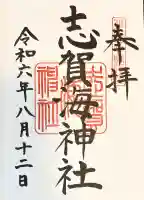 奉拝
志賀海神社
令和六年八月十二日